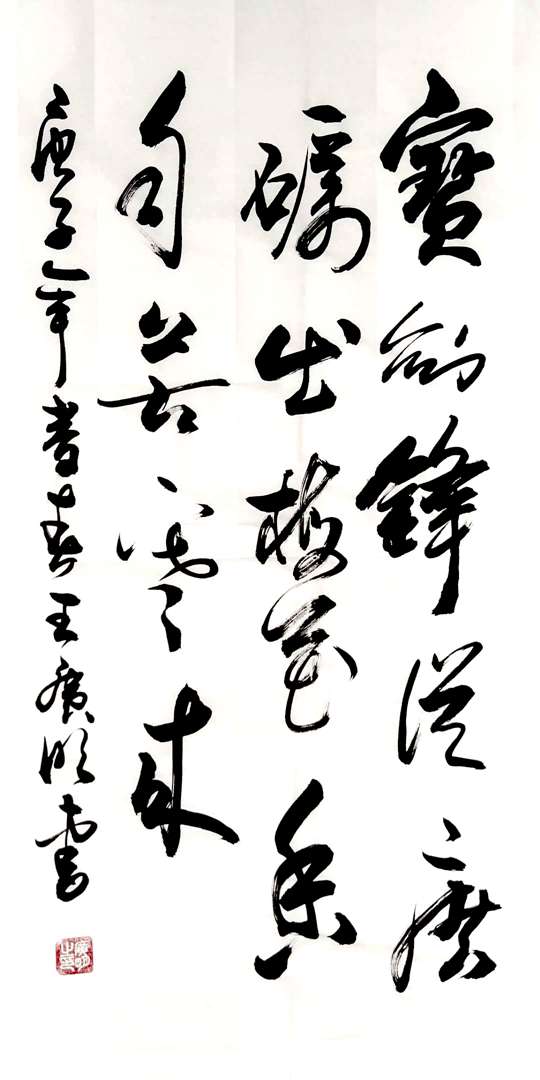 寶劍鋒從磨
礪出梅花香
自苦寒來
庚子年暮春王廣明書